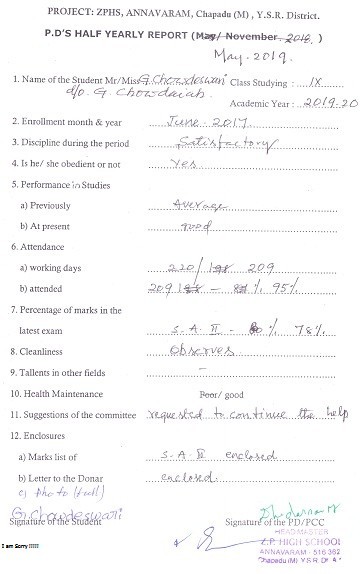 PROJECT: ZPHS, ANNAVARAM, Chapadu (M) , Y.S.R. District.
P.D'S HALF YEARLY REPORT (May/ November 2018. )
May. 2019.
1. Name of the Student Mr/Miss G. Chowdeswari Class Studying : IX
d/o. G. Chowdaiah. Academic Year : 2019-20
2. Enrollment month & year June - 2017
3. Discipline during the period Satisfactory
4. Is he/ she obedient or not Yes
5. Performance in Studies
a) Previously Average
b) At present good
6. Attendance
a) working days 220/ 209
b) attended 209 95%
7. Percentage of marks in the
latest exam S-A-II - 78%
8. Cleanliness Observes
9. Tallents in other fields –
10. Health Maintenance Poor/ good
11. Suggestions of the committee requested to continue the help
12. Enclosures
a) Marks list of S-A-II enclosed
b) Letter to the Donar enclosed.
c) Photo (full)
G. Chowdeswari
Signature of the Student Signature of the PD/PCC
HEADMASTER
Z.P. HIGH SCHOOL
ANNAVARAM - 516 362
Chapadu (M) Y.S.R.
I am Sorry !!!!!